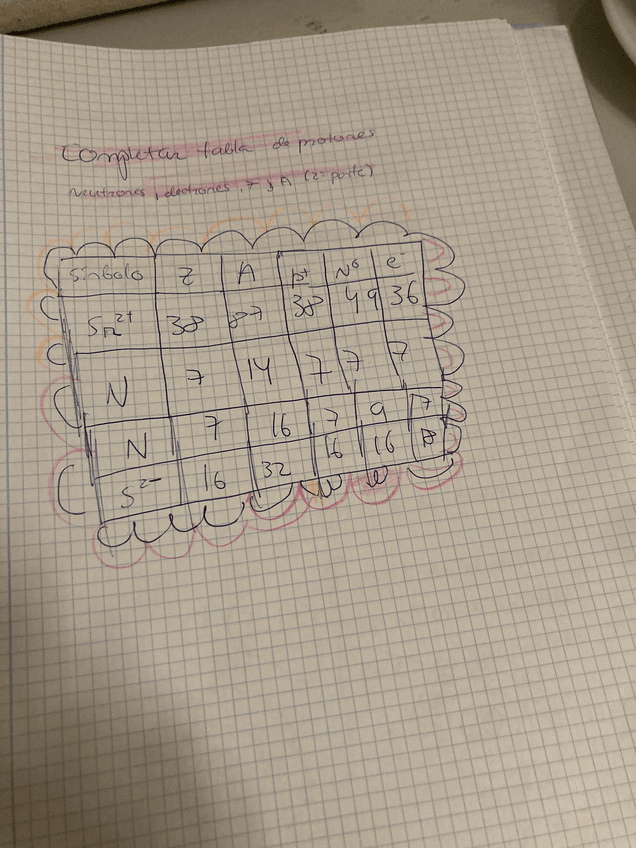 Completar tabla de protones
neutrones, electrones, Z y A (2ª parte)
Símbolo Z A p+ Nº e-
Sr2+ 38 87 38 49 36
N 7 14 7 7 7
N 7 16 7 9 7
S2- 16 32 16 16 18